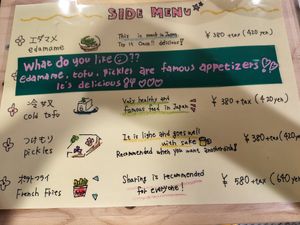 SIDE MENU
エダマメ
edamame
This is most in Japan
Try it Once!! delicious!
¥380+tax (420yen)
What do you like ??
edamame, tofu, pickles are famous appetizers
It's delicious
冷ヤッコ
cold tofu
Very healthy and
famous food in Japan
¥380+tax (420yen)
つけもり
pickles
It is light and goes well
with sake
Recommended when you want
¥380+tax (420yen)
French Fries
Sharing is recommended
for everyone!
¥580+tax (640yen)